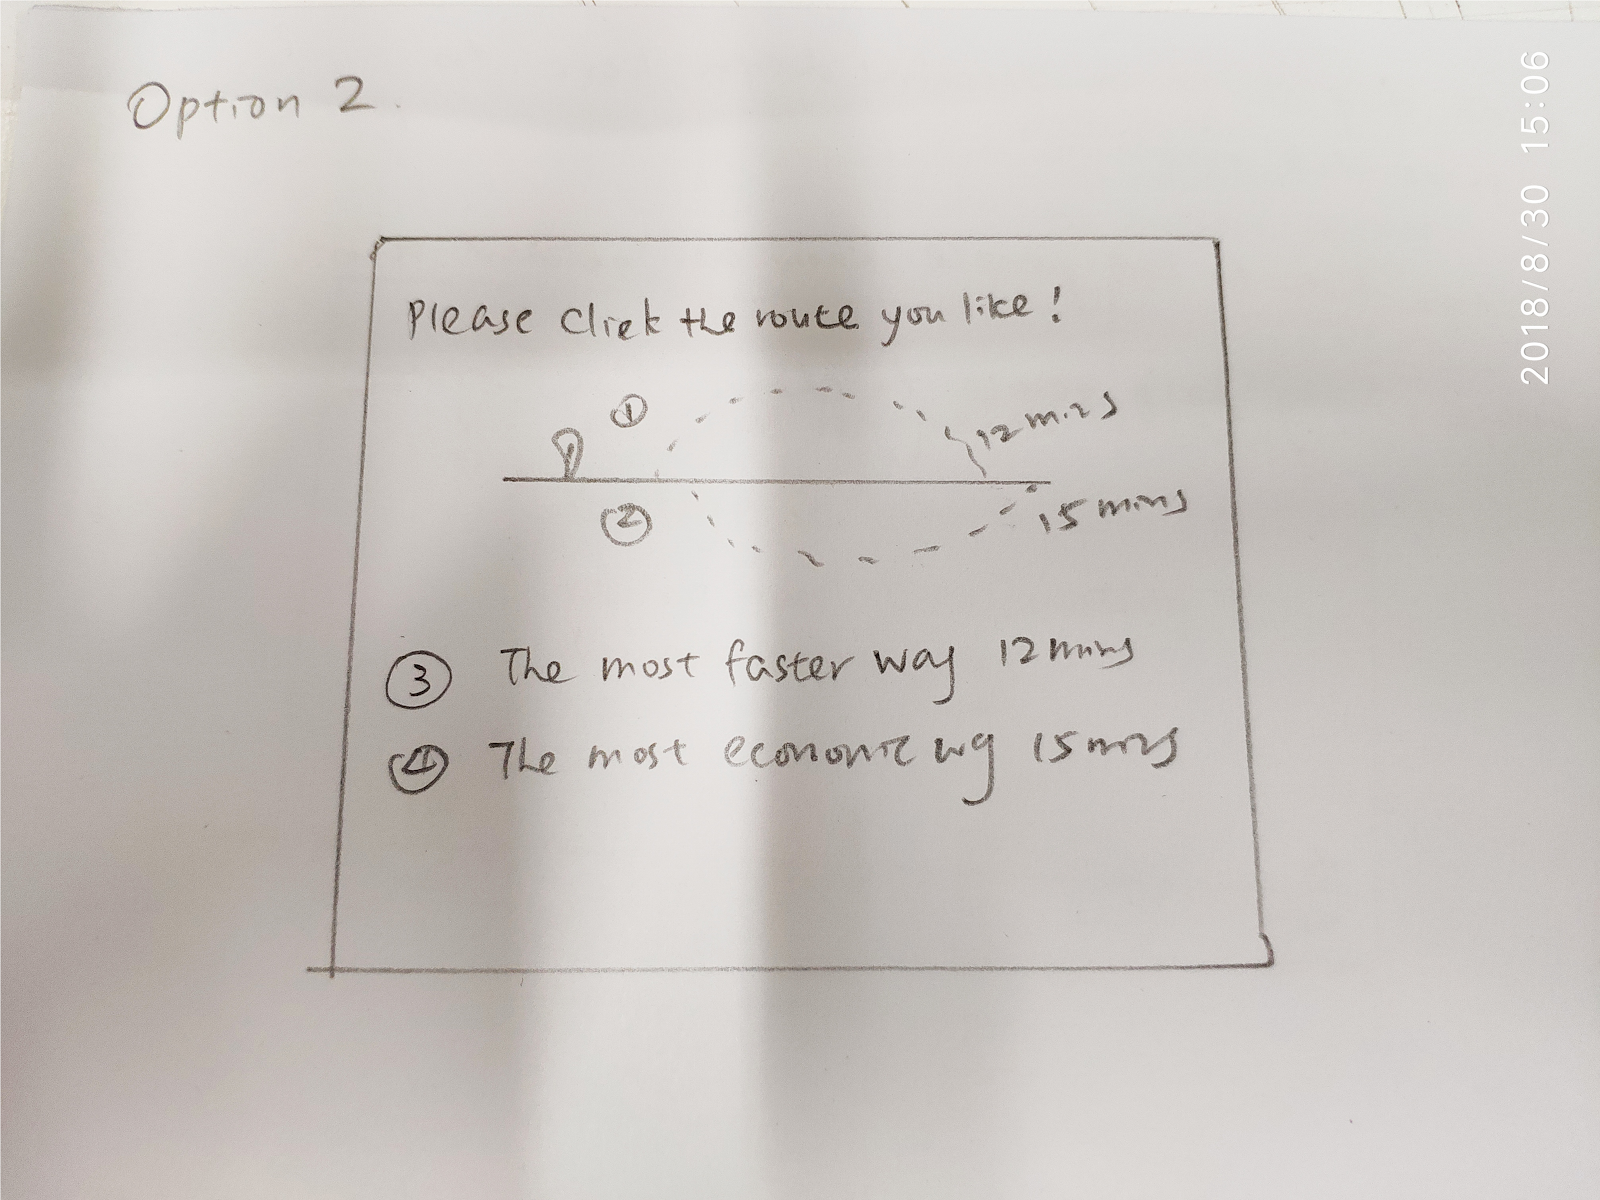 Option 2.
Please click the route you like!
①
12 mins
②
15 mins
③ The most faster way 12 mins
④ The most economic wy 15 mins
2018/8/30 15:06